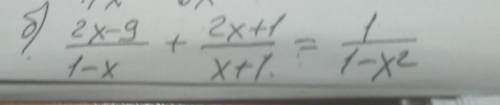 б) (2x-9)/(1-x) + (2x+1)/(x+1) = 1/(1-x²)